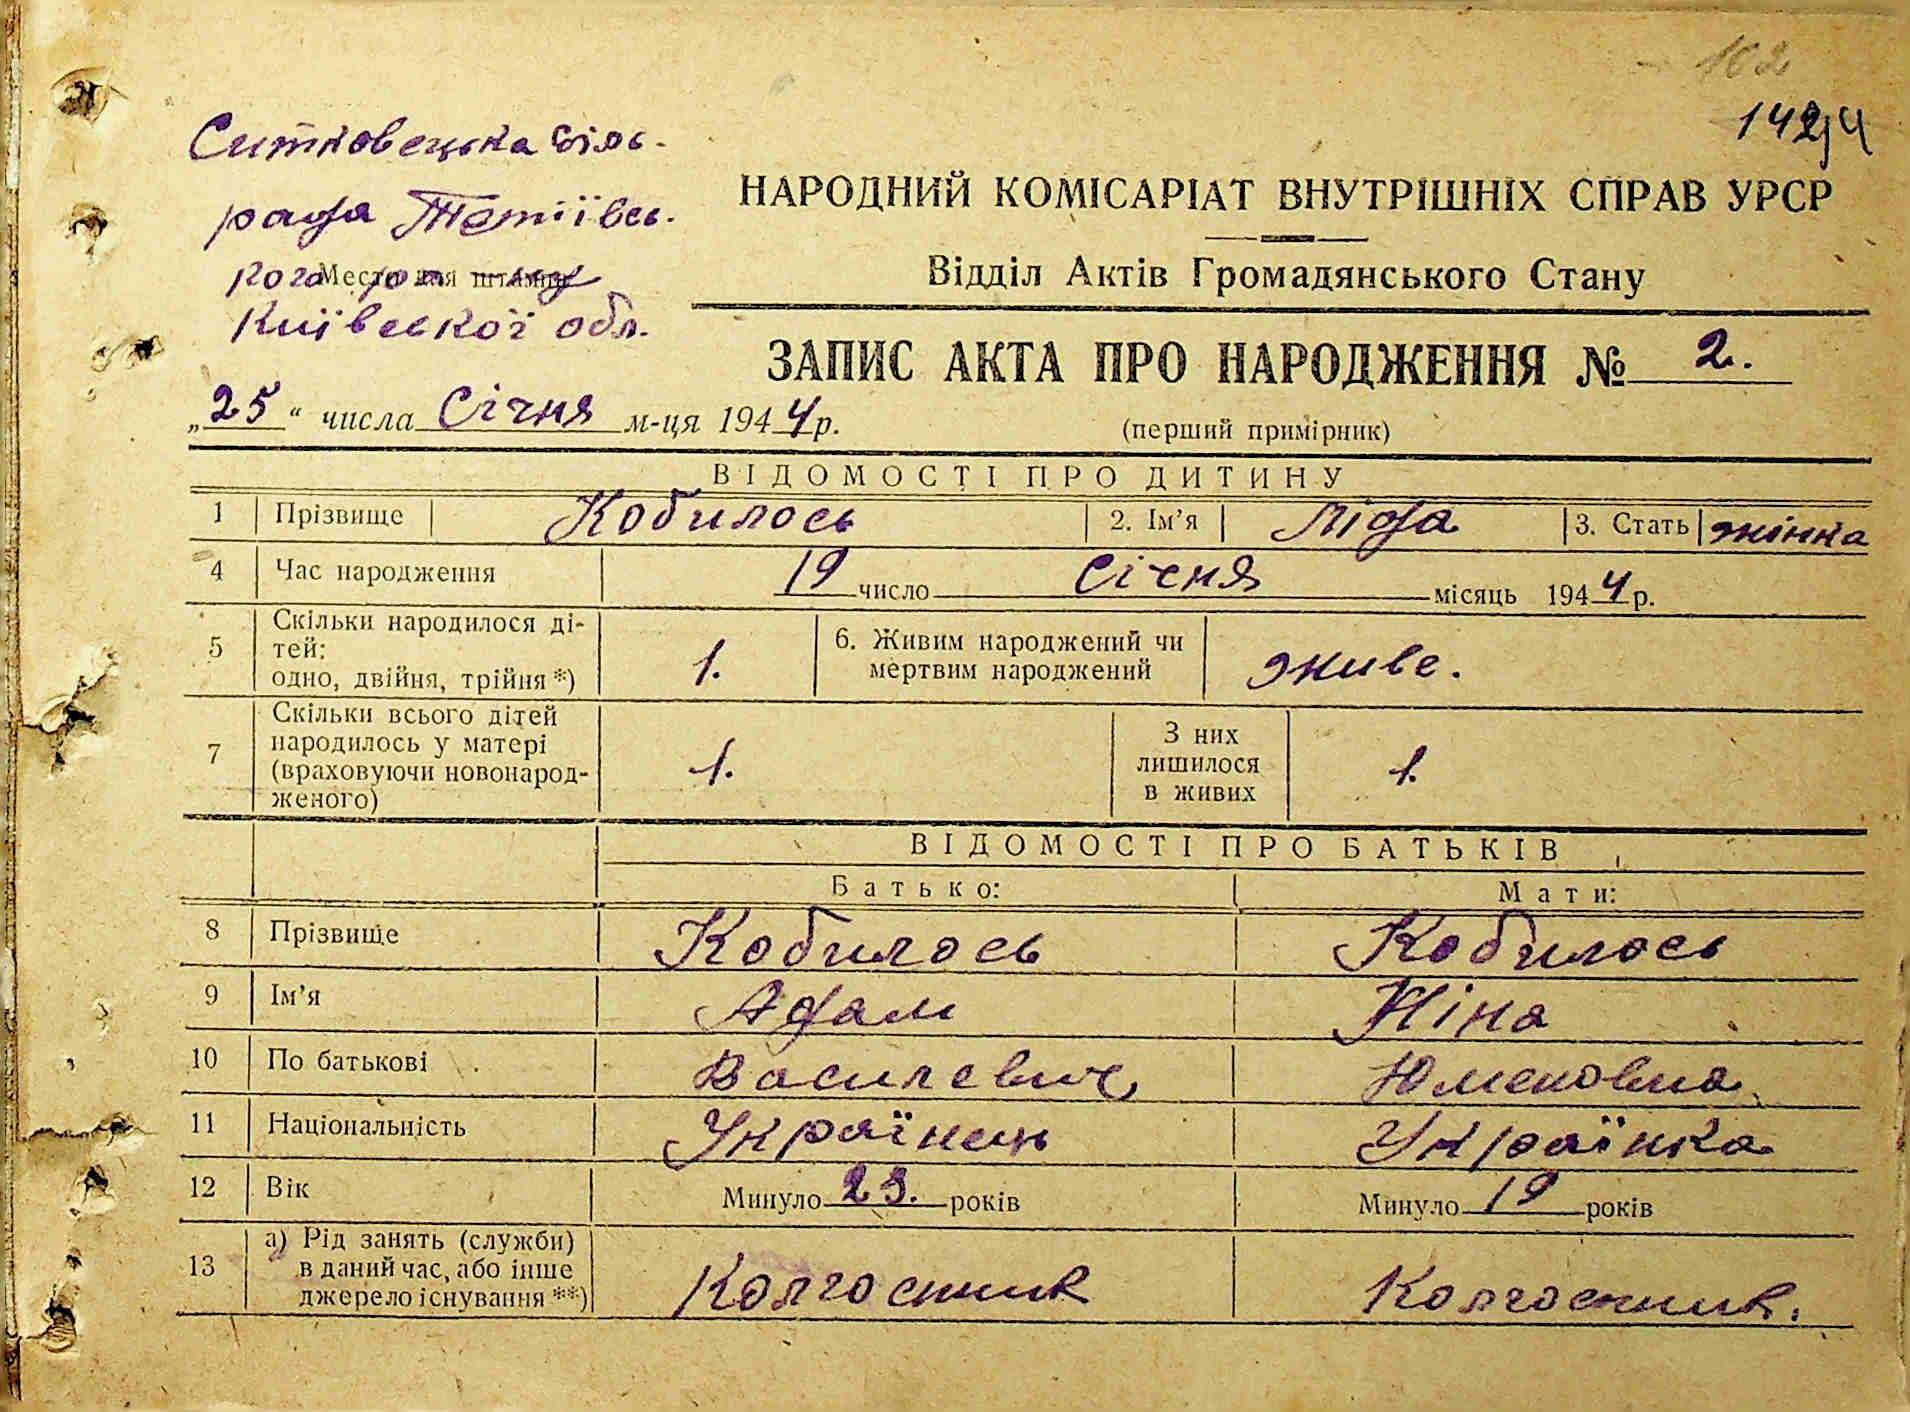 102
142
Ситковецька сіль.
рада Тетіївсь.
кого р-ну
Место для штампа
Київської обл.
НАРОДНИЙ КОМІСАРІАТ ВНУТРІШНІХ СПРАВ УРСР
Відділ Актів Громадянського Стану
ЗАПИС АКТА ПРО НАРОДЖЕННЯ № 2.
„25“ числа Січня м-ця 1944 р.
(перший примірник)
ВІДОМОСТІ ПРО ДИТИНУ
1 Прізвище Кобилось 2. Ім’я Ліда 3. Стать жінка
4 Час народження 19 число Січня місяць 1944 р.
5 Скільки народилося ді-
тей:
одно, двійня, трійня*) 1. 6. Живим народжений чи
мертвим народжений живе.
7 Скільки всього дітей
народилось у матері
(враховуючи новонарод-
женого) 1. З них
лишилося
в живих 1.
ВІДОМОСТІ ПРО БАТЬКІВ
Батько: Мати:
8 Прізвище Кобилось Кобилось
9 Ім’я Адам Ніна
10 По батькові Василевич
11 Національність Українець Українка
12 Вік Минуло 23. років Минуло 19 років
13 а) Рід занять (служби)
в даний час, або інше
джерело існування**) Колгоспник Колгоспник.